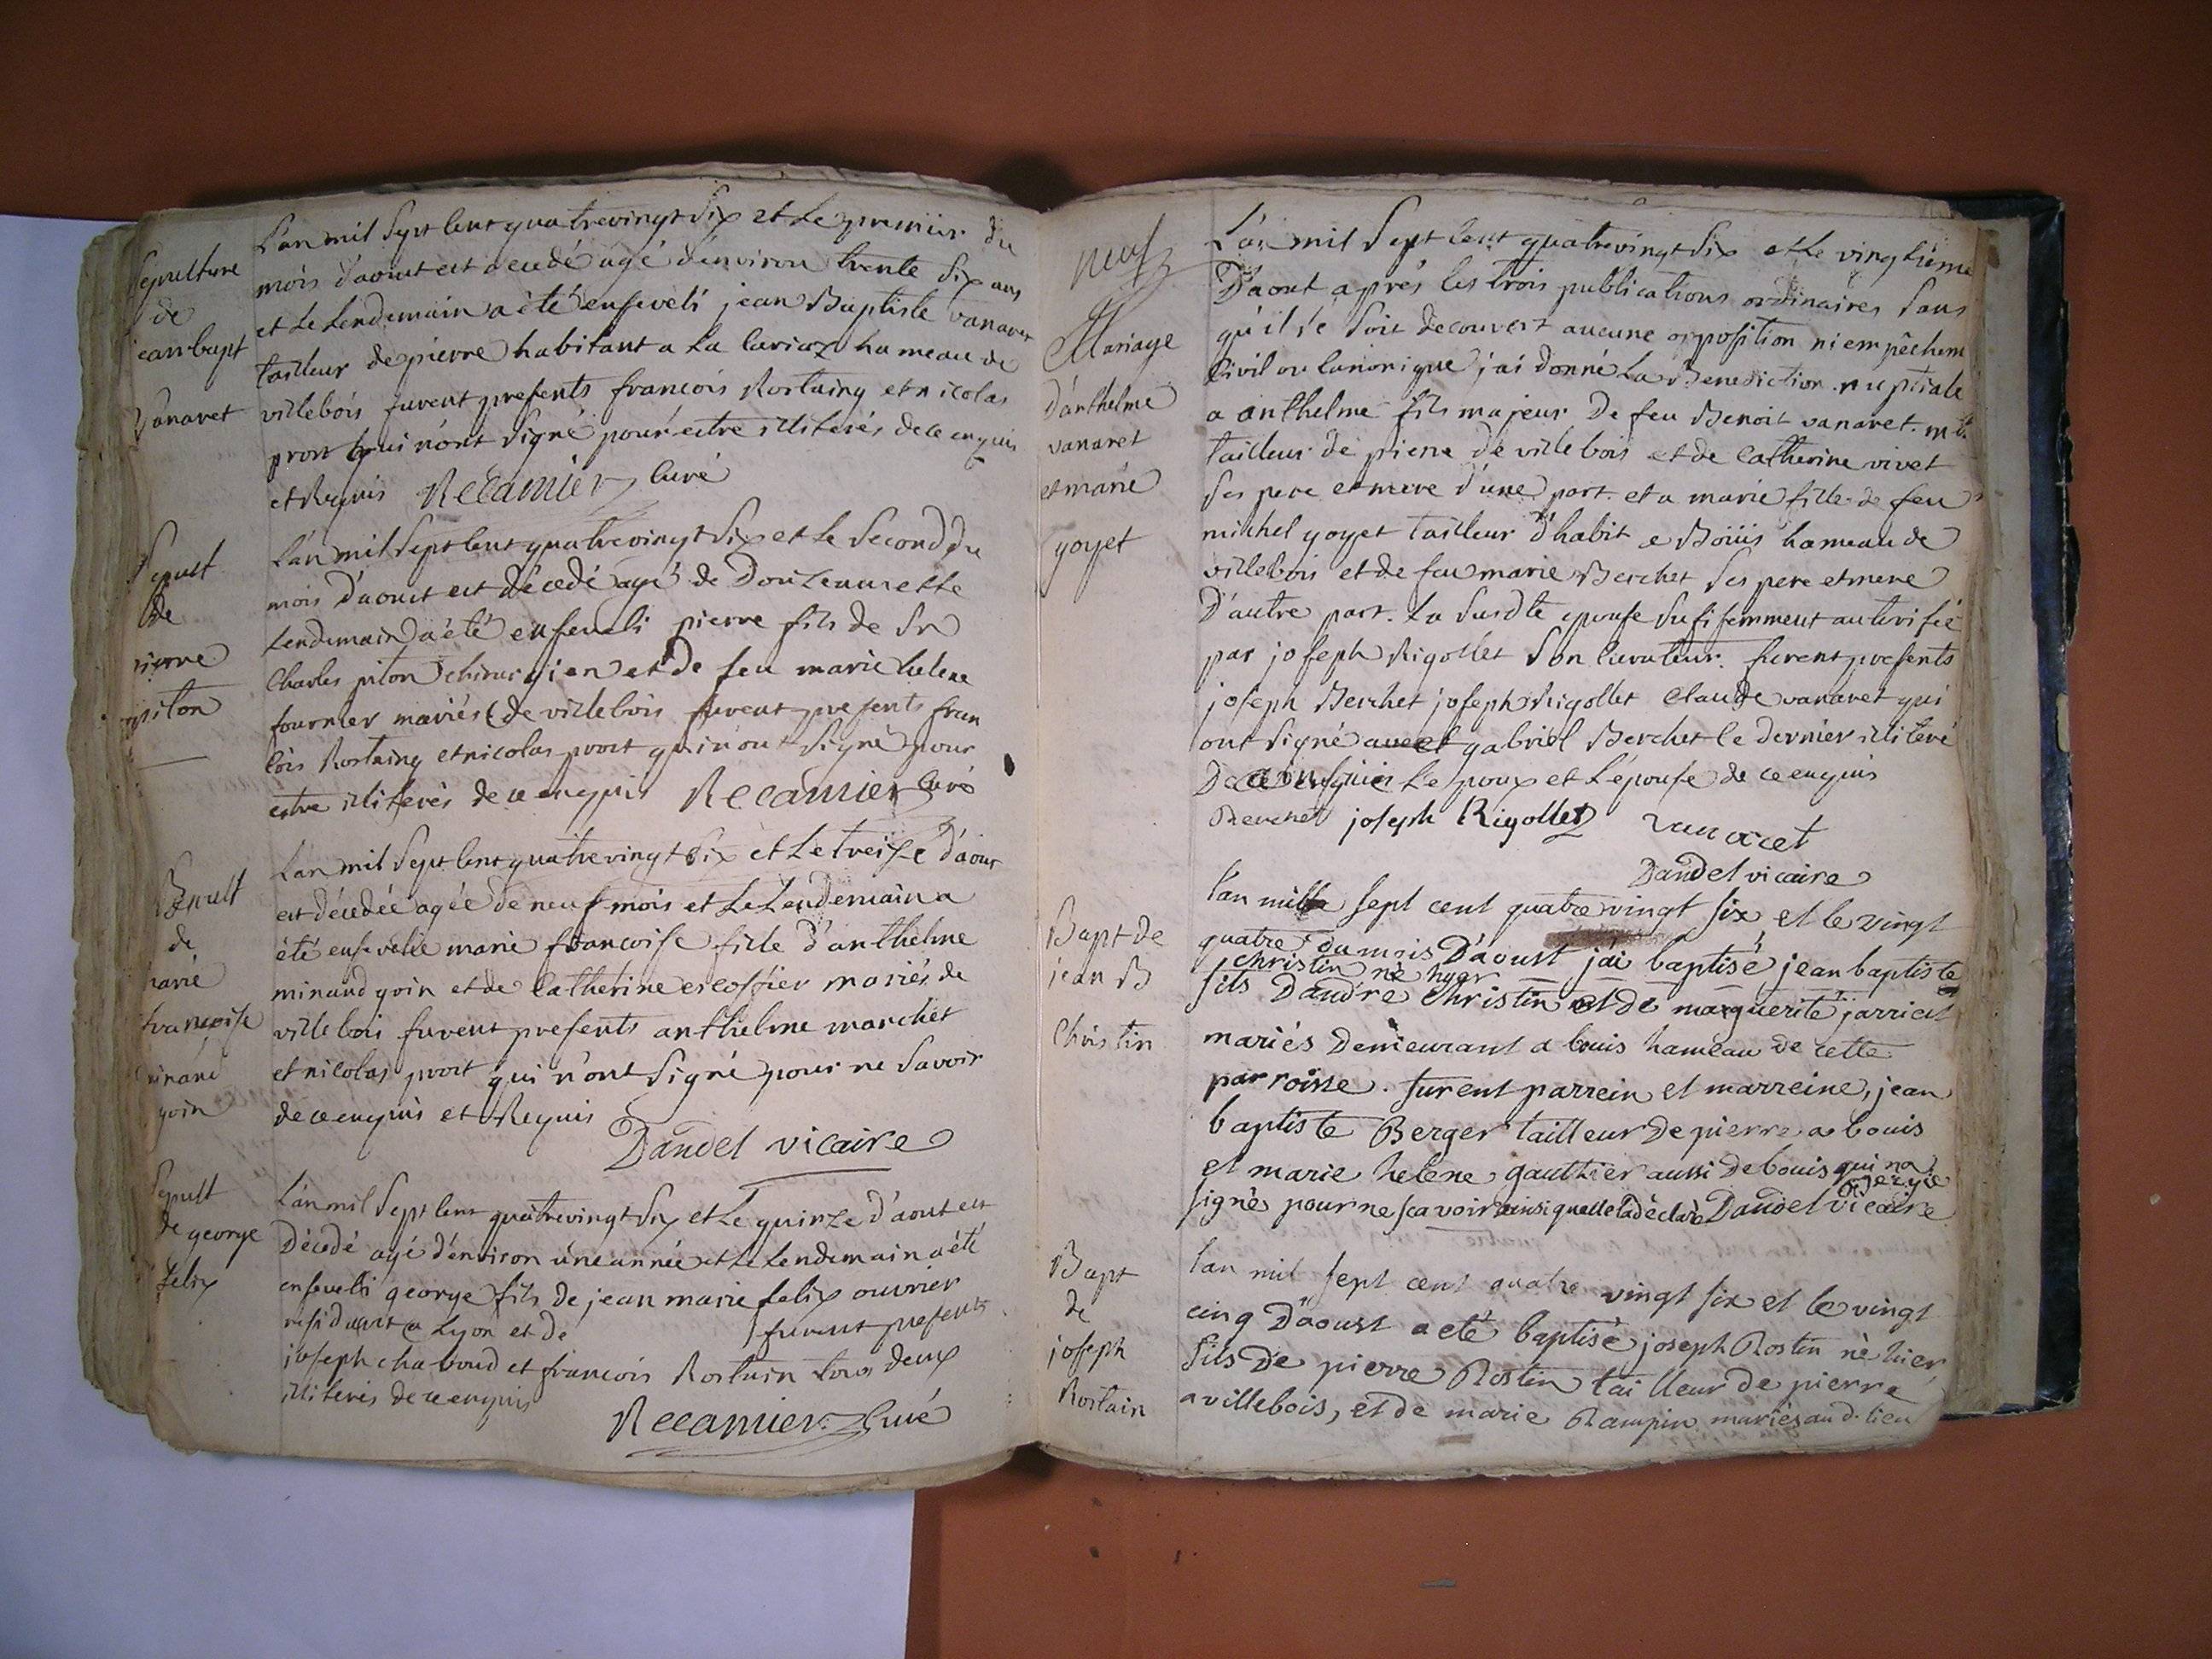 Sepulture
de
jean bapt
vanaret
L'an mil Sept Cent quatrevingt Six et Le premier du
mois d'aoust est decedé agé d'environ trente Six ans
et Le Lendemain a été enseveli jean Baptiste vanaret
tailleur de pierre habitant a La cariaz hameau de
villebois furent presents francois Rostaing et nicolas
prost qui n'ont Signé pour estre illiterés de ce enquis
et Requis Recamier Curé
Sepult
de
pierre
piton
L'an mil Sept Cent quatrevingt Six et Le Second du
mois d'aoust est décedé agé de Douze ans et Le
Lendemain a été enseveli pierre fils de Sr
Charles piton chirurgien et de feu marie helene
fournier mariés de villebois furent presents fran
cois Rostaing et nicolas prost qui n'ont Signé pour
estre illiterés de ce enquis Recamier Curé
Sepult
de
marie
francoise
minand
goin
L'an mil Sept Cent quatrevingt Six et Le treise d'aout
est décedée agée de neuf mois et Le Lendemain a
été ensevelie marie francoise fille d'anthelme
minand goin et de Catherine escoffier mariés de
villebois furent presents anthelme marchet
et nicolas prost qui n'ont Signé pour ne Savoir
de ce enquis et Requis
Dandel vicaire
Sepult
de george
felix
L'an mil Sept Cent quatrevingt Six et Le quinze d'aout est
Décedé agé d'environ une année et Le Lendemain a été
enseveli george fils de jean marie felix ouvrier
residant a Lyon et de furent presents
joseph chaboud et francois Rostain tous deux
illiterés de ce enquis
Recamier Curé
neuf
Mariage
d'anthelme
vanaret
et marie
goyet
L'an mil Sept Cent quatrevingt Six et Le vingtième
D'aout aprés Les trois publications ordinaires Sans
qu'il Se Soit decouvert aucune opposition ni empêchem
Civil ou Canonique j'ai donné La Benediction nuptiale
a anthelme fils majeur De feu Benoit vanaret mtre
tailleur de pierre de villebois et de Catherine vivet
Ses pere et mere d'une part. et a marie fille de feu
michel goyet tailleur d'habit a Boüis hameau de
villebois et de feu marie Berchet Ses pere et mere
D'autre part. La Susdte epouse Sufisemment autorisée
par joseph Rigollet Son Curateur. furent presents
joseph Berchet joseph Rigollet Claude vanaret qui
ont Signé avec gabriel Berchet le dernier illiteré
De ce enquis Le poux et L'épouse de ce enquis
Berchet joseph Rigollet vanaret
Dandel vicaire
Bapt de
jean B
Christin
l'an mille sept cent quatre vingt six, et le vingt
quatre du mois D'aoust j'ai baptisé jean baptiste
christin né hyer
fils D'andré christin et de marguerite jarriet
mariés Demeurant a bouis hameau de cette
parroisse. furent parrein et marreine, jean
baptiste Berger tailleur de pierre a bouis
et marie helene gauthier aussi de bouis qui na
signé pour ne scavoir ainsi quelle la déclaré Dandel vicaire
Bapt
de
joseph
Rostain
l'an mil sept cent quatre vingt six et le vingt
cinq D'aoust a eté baptisé joseph Rostin né hier
fils de pierre Rostin tailleur de pierre
a villebois, et de marie Rampin mariés au d. lieu